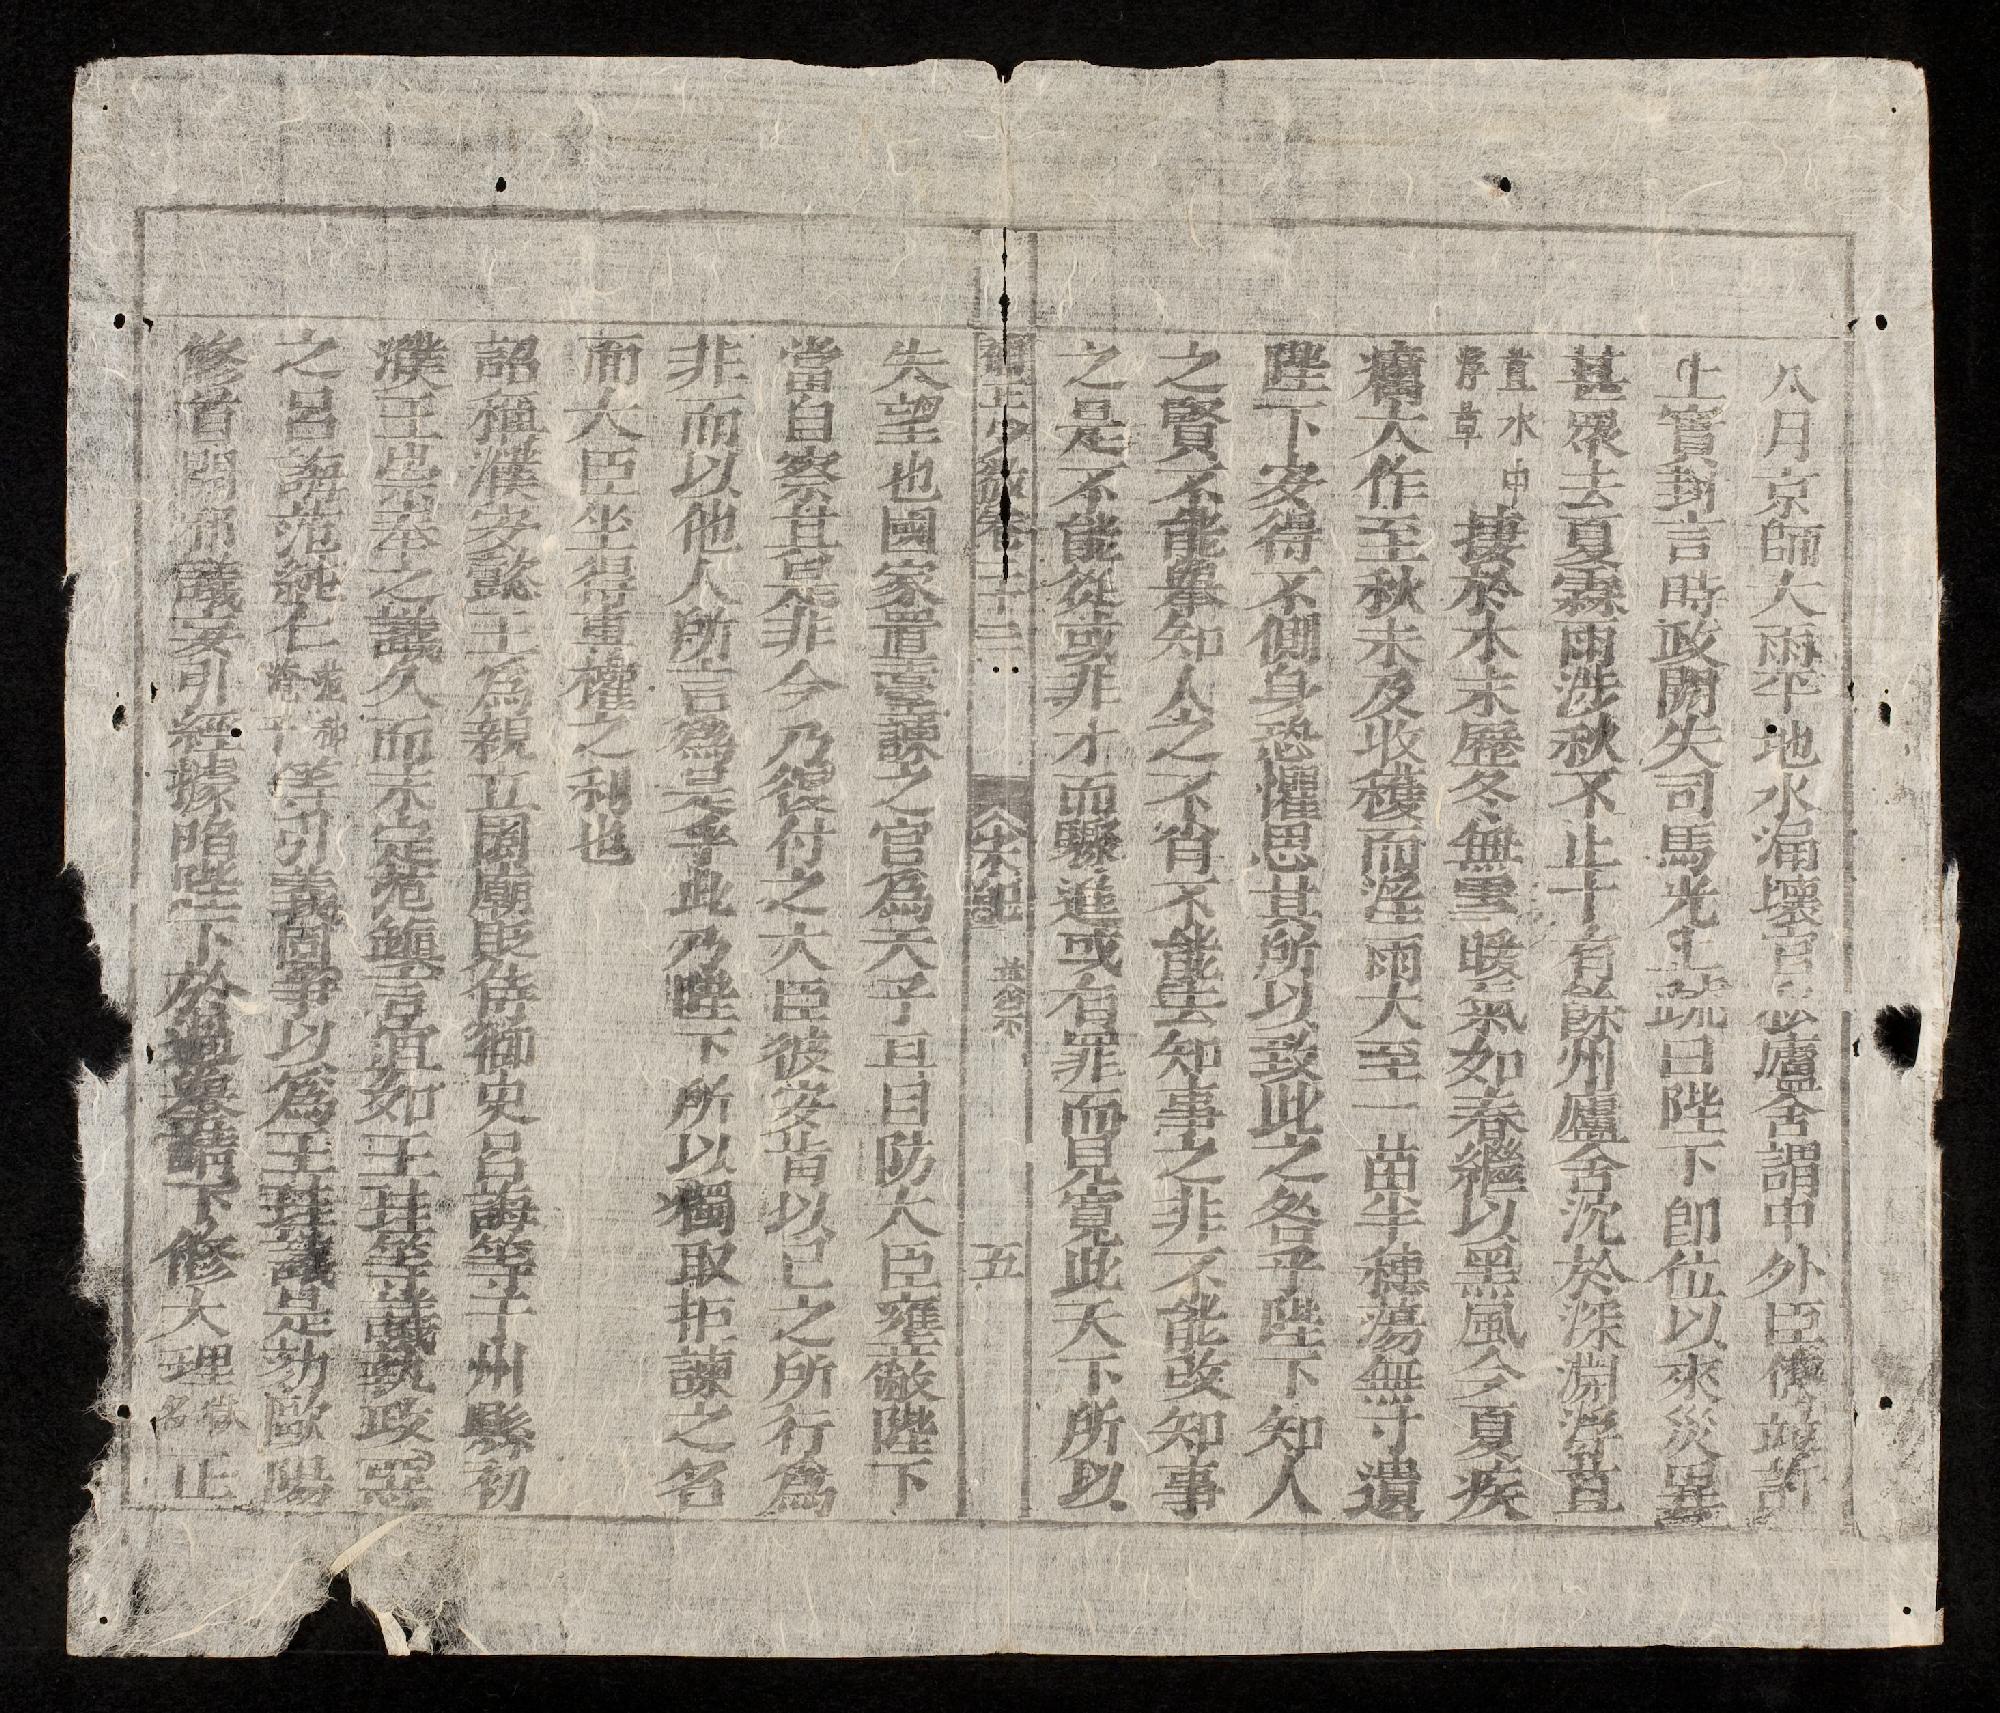 八月京師大雨平地水涌壞官私廬舍謂中外臣僚並許
上實封言時政闕失司馬光上疏曰陛下卽位以來災異
甚衆去夏霖雨涉秋不止十有餘州廬舍沉於深淵浮苴
苴水中
浮草
捿於木末歷冬無雪暖氣如春繼以黑風今夏疾
癘大作至秋未及收穫而淫雨大至一苗半穗蕩無寸遺
陛下安得不側身恐懼思其所以致此之咎乎陛下知人
之賢不能擧知人之不肖不能去知事之非不能改知事
之是不能從或非才而驟進或有罪而見寬此天下所以
少微卷二十三 宋紀 英宗 五
失望也國家置臺諫之官爲天子耳目防大臣壅蔽陛下
當自察其是非今乃復付之大臣彼安肯以已之所行爲
非而以他人所言爲是乎此乃陛下所以獨取拒諫之名
而大臣坐得重權之利也
詔稱濮安懿王爲親立園廟貶侍御史呂誨等于州縣初
濮王崇奉之議久而未定范鎭言宜如王珪等議執政惡
之呂誨范純仁
等引義固爭以爲王珪議是劾歐陽
修首開邪議妄引經據陷陛下於過擧請下修大理
獄名
正